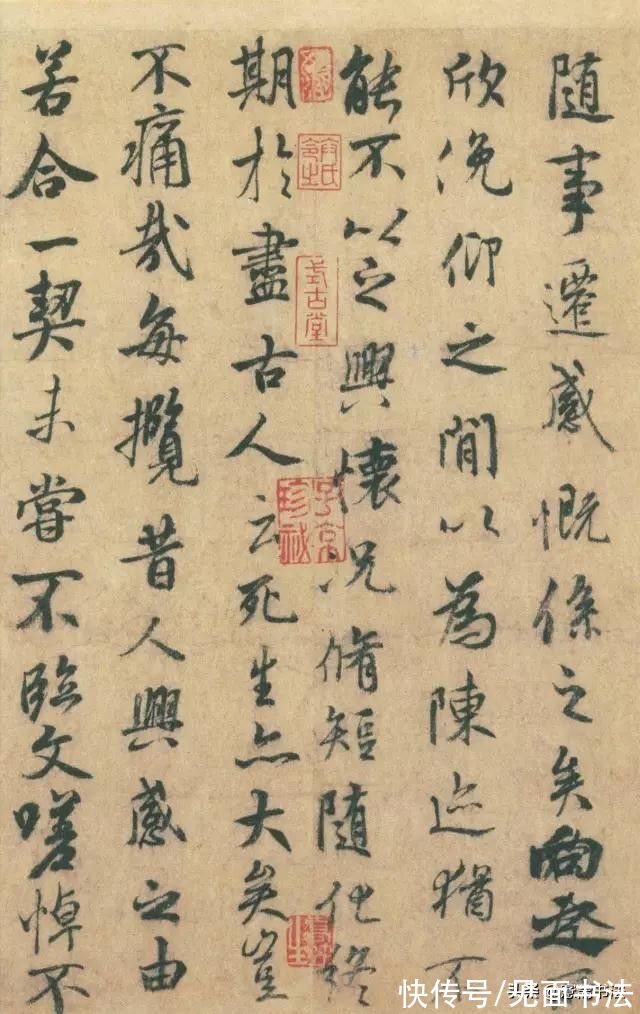 随事遷感慨係之矣向之
欣俛仰之閒以為陳迹猶不
能不以之興懷況脩短随化終
期於盡古人云死生亦大矣豈
不痛哉每攬昔人興感之由
若合一契未嘗不臨文嗟悼不
式古堂
快传号/见面书法